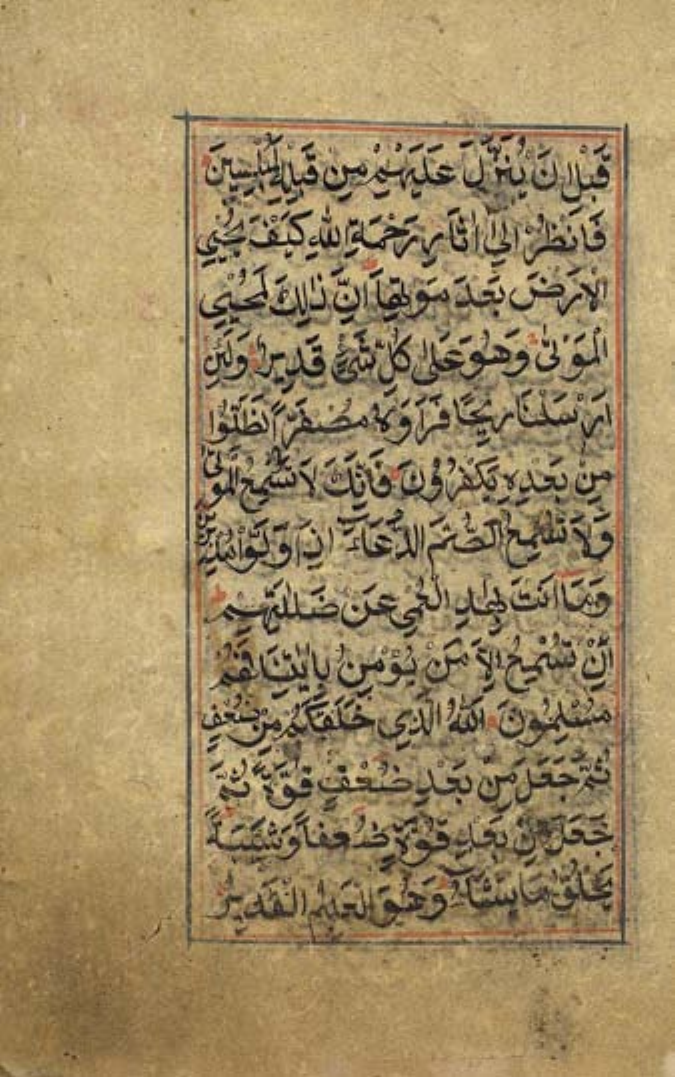 قَبْلِ اَنْ يُنَزَّلَ عَلَيْهِمْ مِنْ قَبْلِهِ لَمُبْلِسِينَ
فَانْظُرْ اِلٰى اٰثَارِ رَحْمَةِ اللّٰهِ كَيْفَ يُحْيِي
الْاَرْضَ بَعْدَ مَوْتِهَا اِنَّ ذٰلِكَ لَمُحْيِي
الْمَوْتٰى وَهُوَ عَلٰى كُلِّ شَيْءٍ قَدِيرٌ وَلَئِنْ
اَرْسَلْنَا رِيحًا فَرَاَوْهُ مُصْفَرًّا لَظَلُّوا
مِنْ بَعْدِهِ يَكْفُرُونَ فَاِنَّكَ لَا تُسْمِعُ الْمَوْتٰى
وَلَا تُسْمِعُ الصُّمَّ الدُّعَاءَ اِذَا وَلَّوْا مُدْبِرِينَ
وَمَا اَنْتَ بِهَادِ الْعُمْيِ عَنْ ضَلٰلَتِهِمْ
اِنْ تُسْمِعُ اِلَّا مَنْ يُؤْمِنُ بِاٰيٰتِنَا فَهُمْ
مُسْلِمُونَ اَللّٰهُ الَّذِي خَلَقَكُمْ مِنْ ضُعْفٍ
ثُمَّ جَعَلَ مِنْ بَعْدِ ضُعْفٍ قُوَّةً ثُمَّ
جَعَلَ مِنْ بَعْدِ قُوَّةٍ ضُعْفًا وَشَيْبَةً
يَخْلُقُ مَا يَشَاءُ وَهُوَ الْعَلِيمُ الْقَدِيرُ